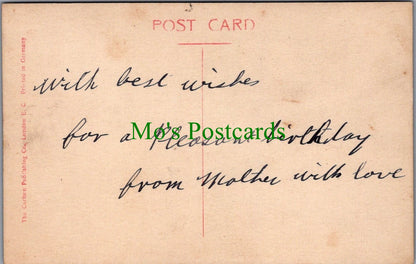 POST CARD
with best wishes
for a Pleasant birthday
from Mother with love
Mo's Postcards
The Carlton Publishing Co., London E. C. Printed in Germany